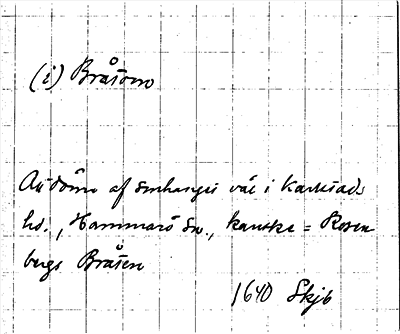 (i) Bråten
Att döma af sammanhanget väl i Karlstads
hd., Hammarö sn., kanske = Rosen
bergs Bråten
1640 Skjb